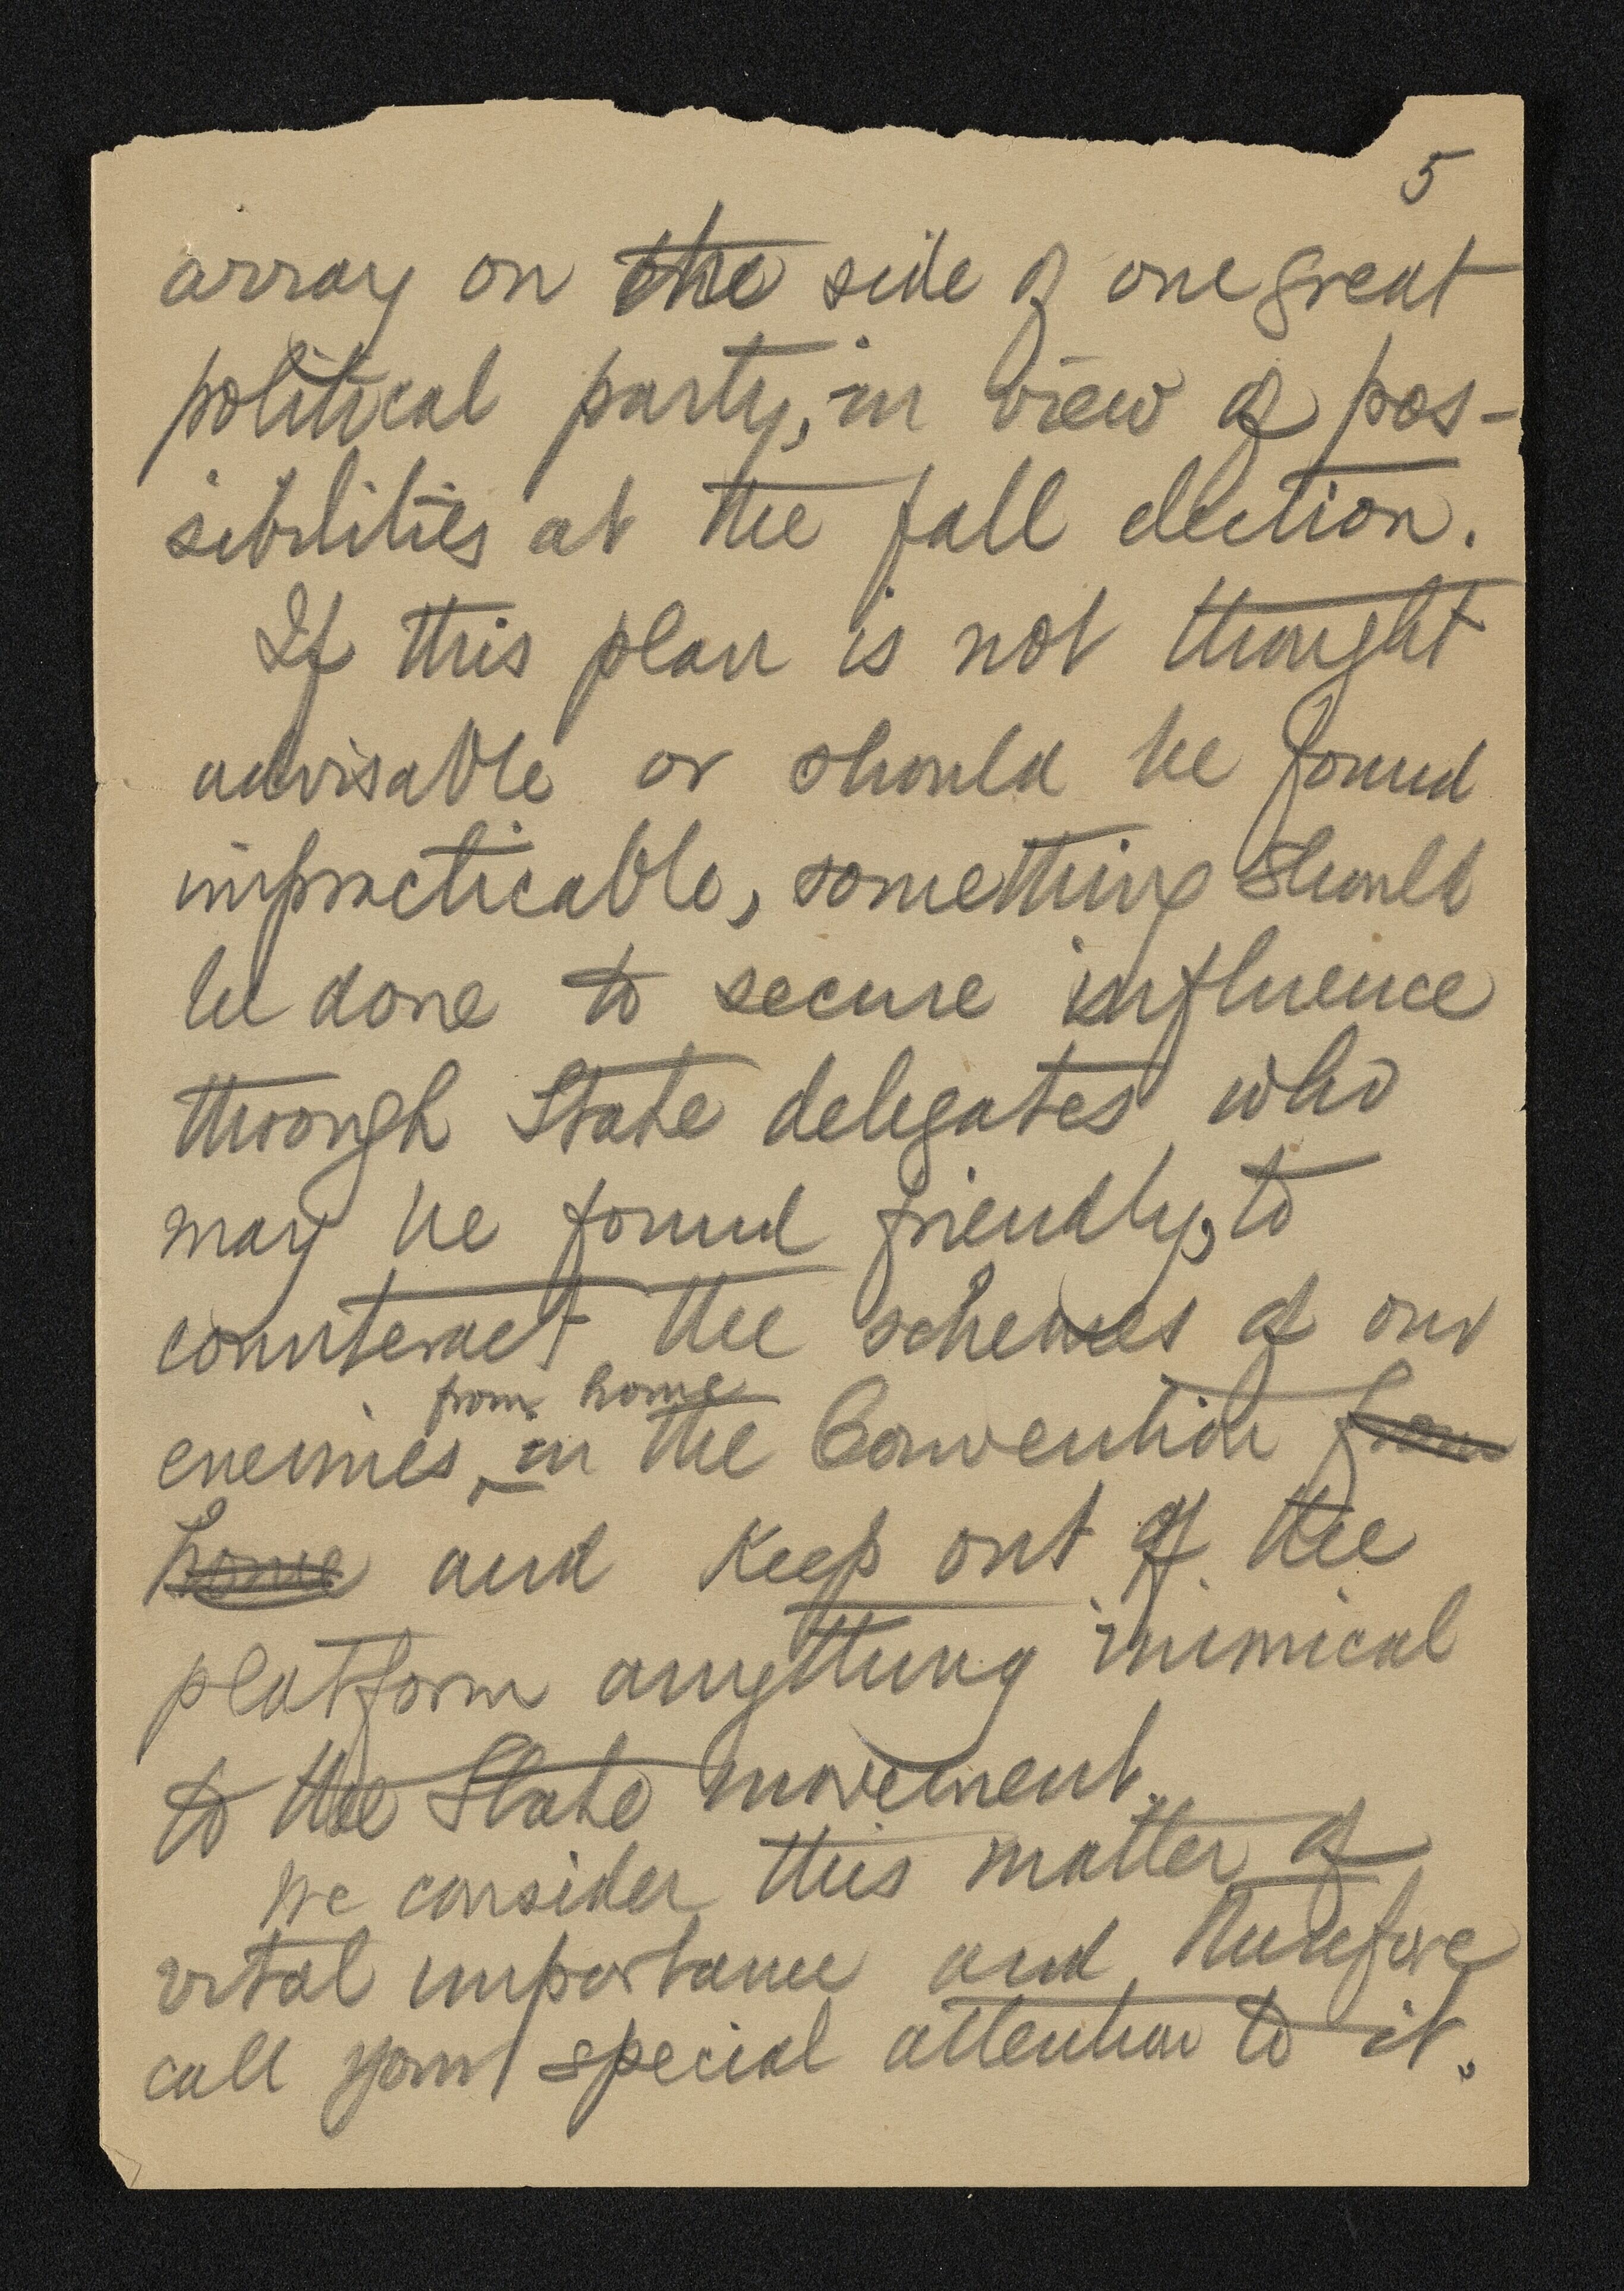 5
array on the side of one great
political party, in view of pos-
sibilities at the fall election.
If this plan is not thought
advisable or should be found
impracticable, something should
be done to secure influence
through State delegates who
may be found friendly, to
counteract the schemes of our
from home
enemies, in the Convention from
home and keep out of the
platform anything inimical
to the State movement.
We consider this matter of
vital importance and therefore
call your special attention to it.